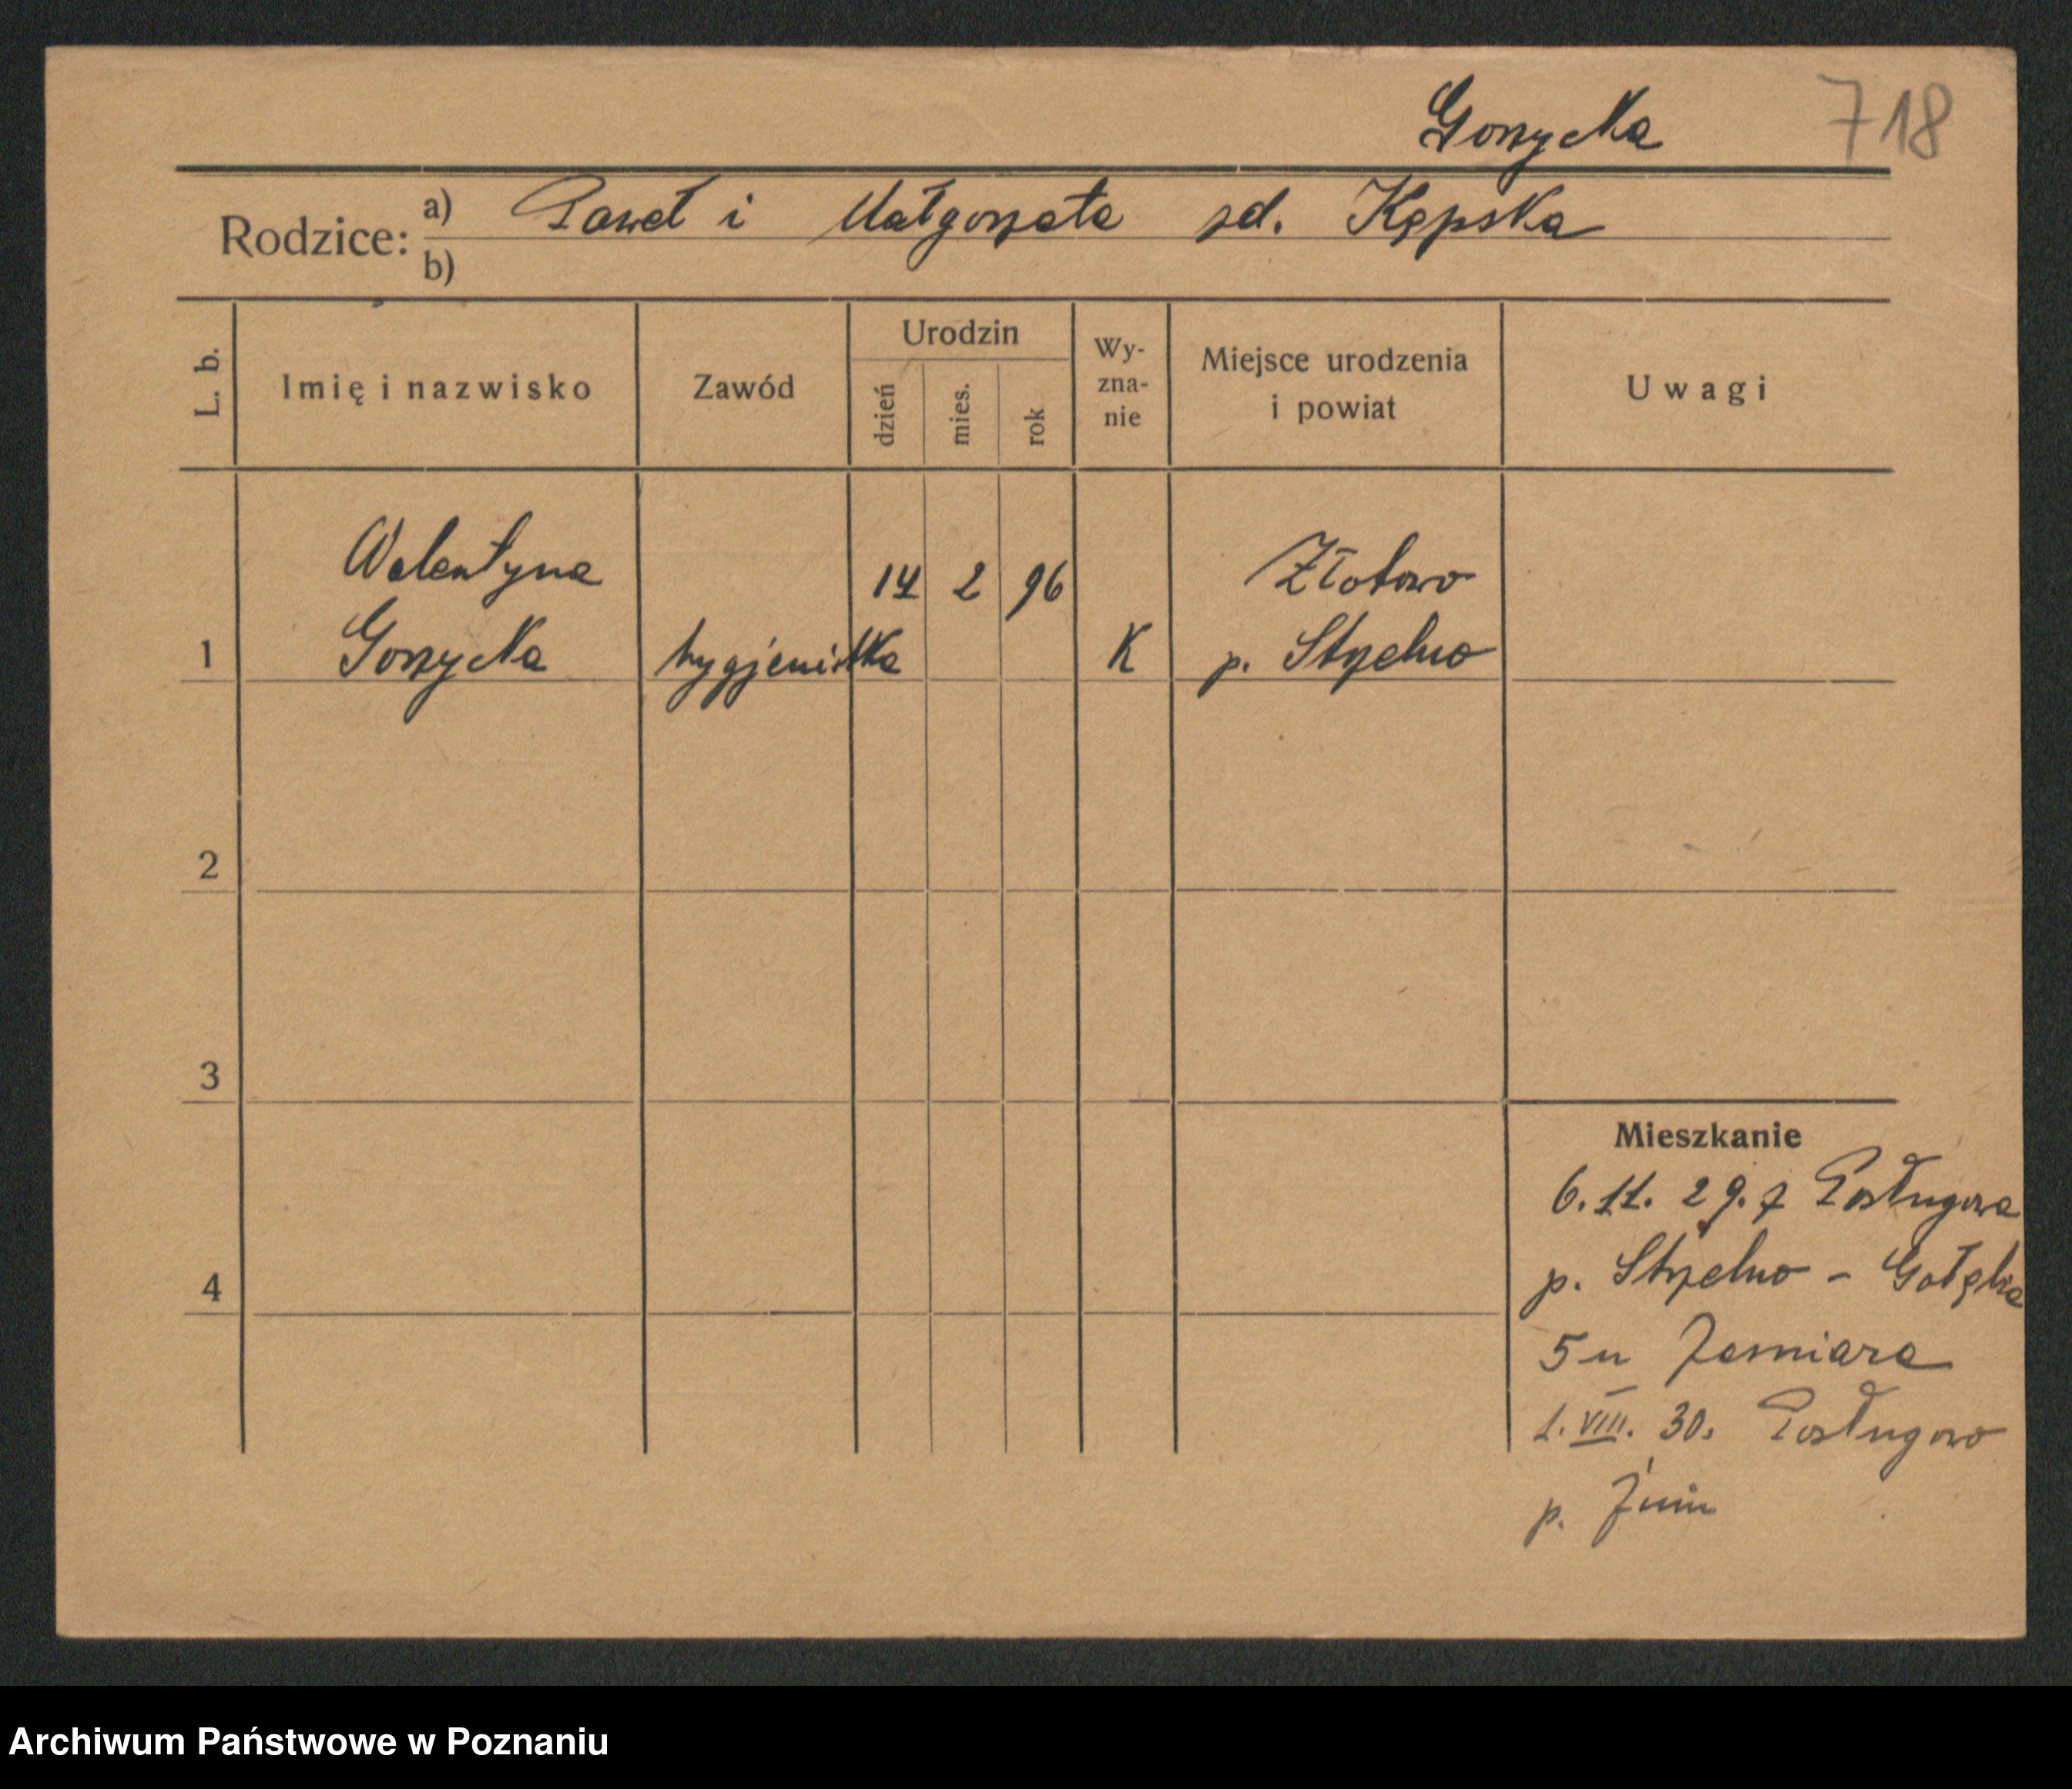 Gorzycka 718
Rodzice: a) Paweł i Małgorzata zd. Kępska
b)
L. b. Imię i nazwisko Zawód Urodzin dzień mies. rok Wy-zna-nie Miejsce urodzenia i powiat Uwagi
Walentyna 14 2 96 Złotowo
1 Gorzycka hygjenistka K p. Strzelno
2
3
Mieszkanie
6. 11. 29. z Posługowa
4 p. Strzelno - Gołębia
5 u
1. VIII. 30. Posługowo
p. Żnin
Archiwum Państwowe w Poznaniu